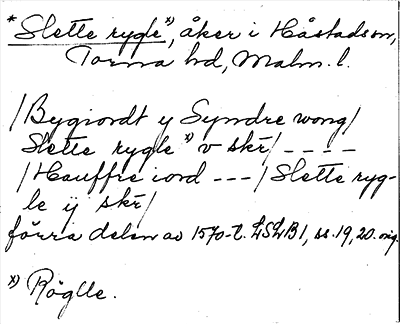 *Slette rygle*), åker i Håstads sn,
Torna hd, Malm. l.
/Bygiordt y Syndre wong/
Slette rygle *) v skr/ - - - -
/Hauffre iord - - -/ Slette ryg-
le ij skr/
förra delen av 1570-t. LSLB 1, ss. 19, 20. orig.
*) Röglle.